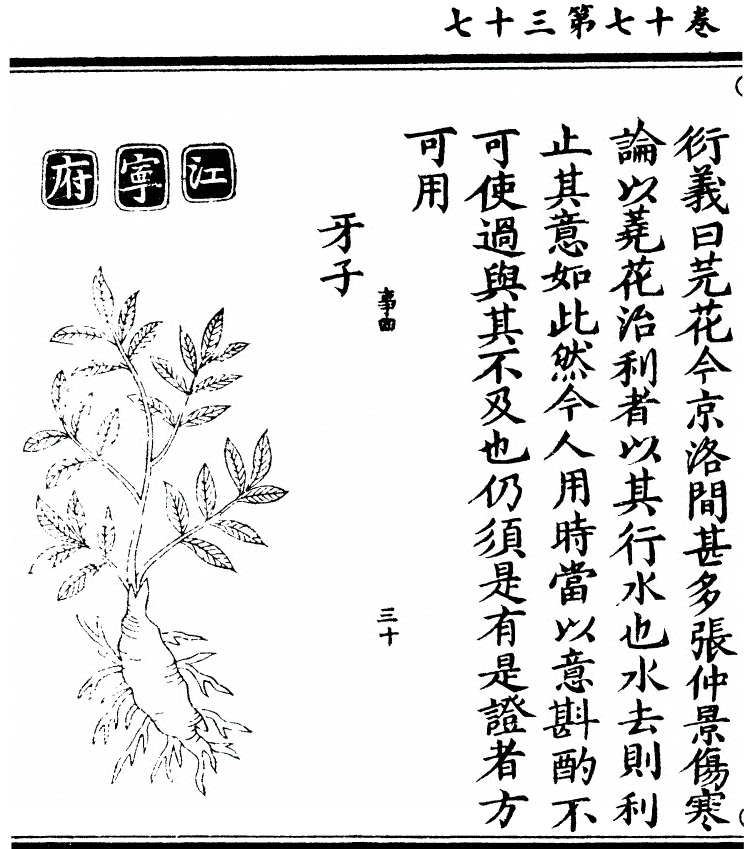 卷十七第三十七
衍義曰芫花今京洛間甚多張仲景傷寒
論以蕘花治利者以其行水也水去則利
止其意如此然今人用時當以意斟酌不
可使過與其不及也仍須是有是證者方
可用
事四
三十
牙子
江寧府